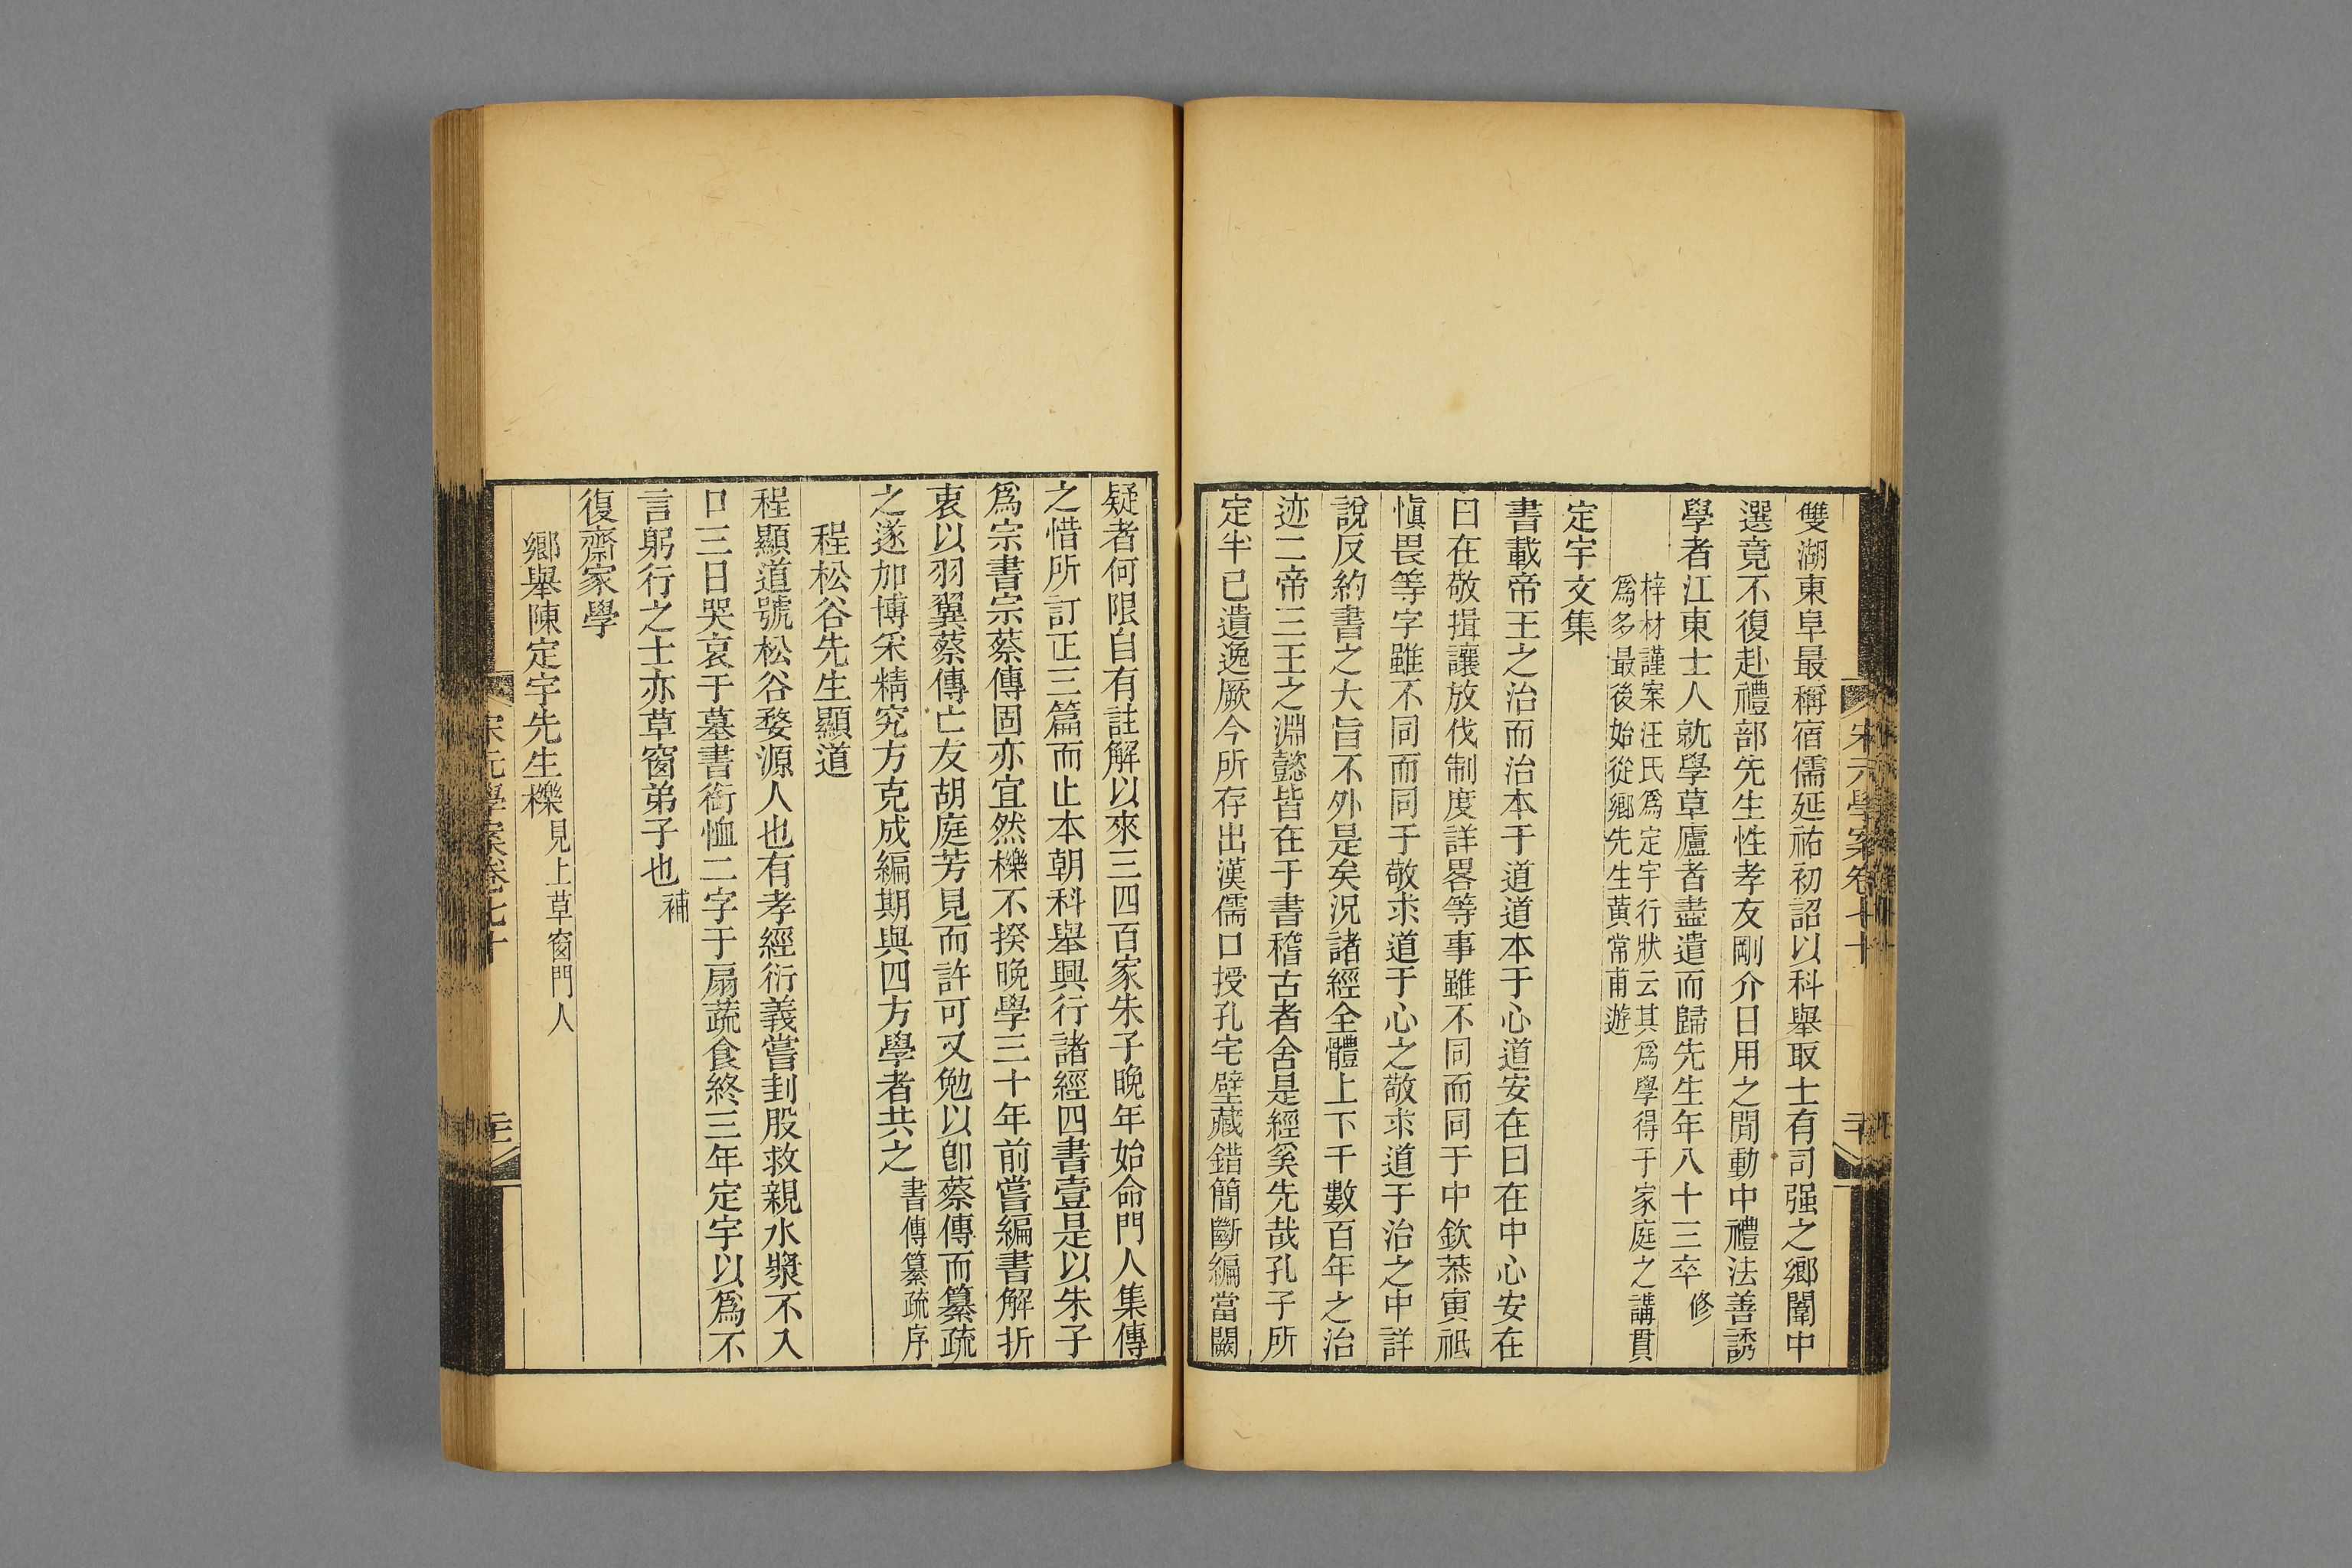 宋元學案卷七十
雙湖東阜最稱宿儒延祐初詔以科舉取士有司强之鄉闈中
選竟不復赴禮部先生性孝友剛介日用之閒動中禮法善誘
學者江東士人就學草廬者盡遣而歸先生年八十三卒修
梓材謹案汪氏爲定宇行狀云其爲學得于家庭之講貫
爲多最後始從鄉先生黃常甫遊
定宇文集
書載帝王之治而治本于道道本于心道安在曰在中心安在
曰在敬揖讓放伐制度詳畧等事雖不同而同于中欽恭寅祗
愼畏等字雖不同而同于敬求道于心之敬求道于治之中詳
說反約書之大旨不外是矣況諸經全體上下千數百年之治
迹二帝三王之淵懿皆在于書稽古者舍是經奚先哉孔子所
定半已遺逸厥今所存出漢儒口授孔宅壁藏錯簡斷編當闕
疑者何限自有註解以來三四百家朱子晚年始命門人集傳
之惜所訂正三篇而止本朝科舉興行諸經四書壹是以朱子
爲宗書宗蔡傳固亦宜然櫟不揆晚學三十年前嘗編書解折
衷以羽翼蔡傳亡友胡庭芳見而許可又勉以卽蔡傳而纂疏
之遂加博采精究方克成編期與四方學者共之書傳纂疏序
程松谷先生顯道
程顯道號松谷婺源人也有孝經衍義嘗刲股救親水漿不入
口三日哭哀于墓書銜恤二字于扇蔬食終三年定宇以爲不
言躬行之士亦草窗弟子也補
復齋家學
鄉舉陳定宇先生櫟見上草窗門人
宋元學案卷七十